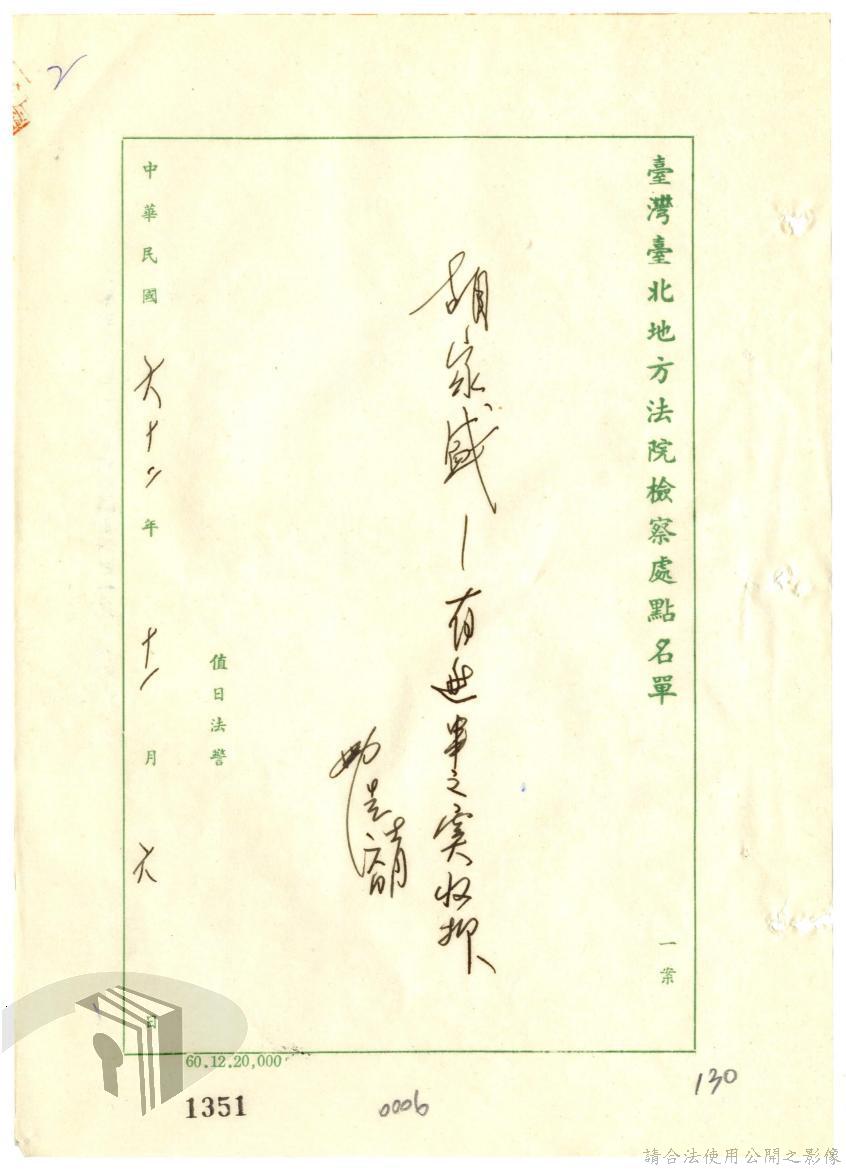 2
臺灣臺北地方法院檢察處點名單
一案
胡家盛
有逃串之虞收押
值日法警
中華民國六十二年十一月六日
60.12.20,000
1351
0006
130
請合法使用公開之影像